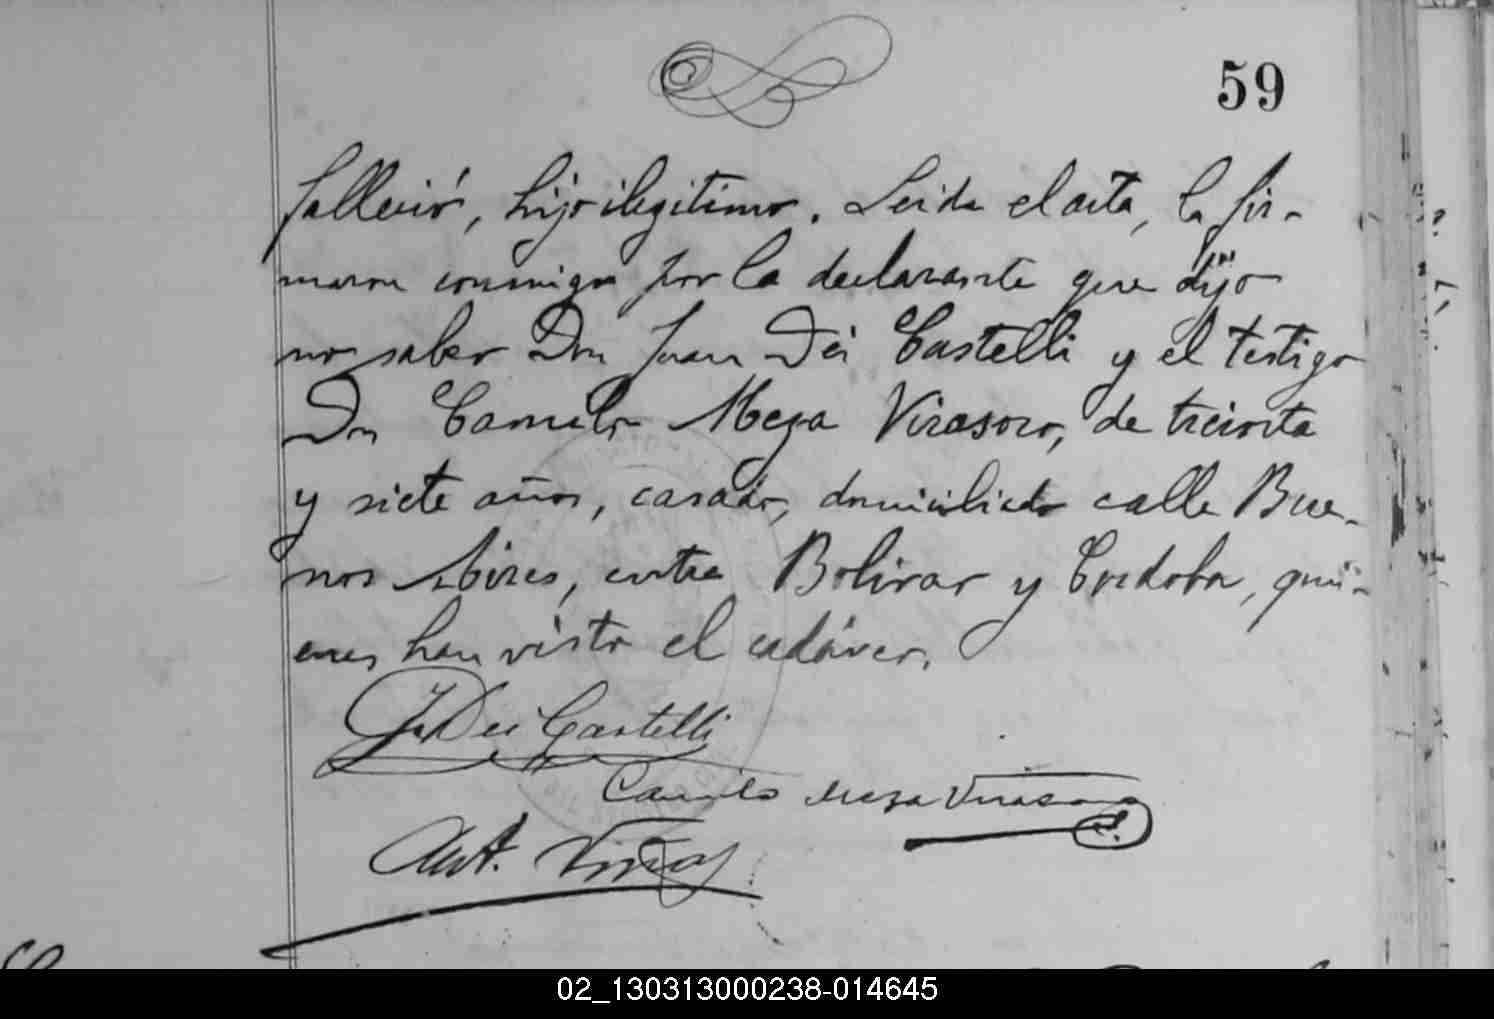 59
falleció, hijo ilegitimo. Leida el acta, la fir-
maron conmigo por la declarante que dijo
no saber Don Juan Dei Castelli y el testigo
Don Camilo Meza Virasoro, de treinta
y siete años, casado, domiciliado calle Bue-
nos Aires, entre Bolivar y Cordoba, qui-
enes han visto el cadáver.
J. Dei Castelli
Camilo Meza Virasoro
Ant. Viñas
02_130313000238-014645